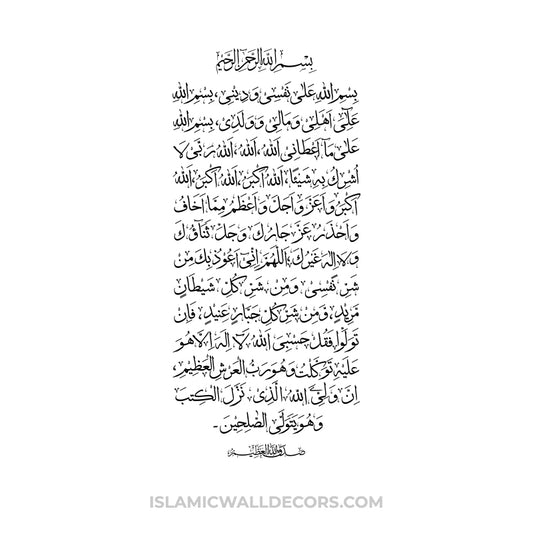 بِسْمِ اللهِ الرَّحْمٰنِ الرَّحِيْمِ
بِسْمِ اللهِ عَلٰى نَفْسِىْ وَدِيْنِىْ، بِسْمِ اللهِ
عَلٰٓى اَهْلِىْ وَمَالِىْ وَوَلَدِىْ، بِسْمِ اللهِ
عَلٰى مَآ اَعْطَانِىَ اللهُ، اَللهُ، اَللهُ رَبِّىْ لَا
اُشْرِكُ بِهٖ شَيْئًا، اَللهُ اَكْبَرُ، اَللهُ اَكْبَرُ، اَللهُ
اَكْبَرُ وَاَعَزُّ وَاَجَلُّ وَاَعْظَمُ مِمَّا اَخَافُ
وَاَحْذَرُ عَزَّ جَارُكَ وَجَلَّ ثَنَآؤُكَ
وَلَا اِلٰهَ غَيْرُكَ، اَللّٰهُمَّ اِنِّىْ اَعُوْذُ بِكَ مِنْ
شَرِّ نَفْسِىْ وَمِنْ شَرِّ كُلِّ شَيْطَانٍ
مَّرِيْدٍ، وَمِنْ شَرِّ كُلِّ جَبَّارٍ عَنِيْدٍ، فَاِنْ
تَوَلَّوْا فَقُلْ حَسْبِىَ اللهُ لَآ اِلٰهَ اِلَّا هُوَ
عَلَيْهِ تَوَكَّلْتُ وَهُوَ رَبُّ الْعَرْشِ الْعَظِيْمِ،
اِنَّ وَلِيِّ َۧ اللهُ الَّذِىْ نَزَّلَ الْكِتٰبَ
وَهُوَ يَتَوَلَّى الصّٰلِحِيْنَ ۔
صَدَقَ اللهُ الْعَظِيْمُ
ISLAMICWALLDECORS.COM